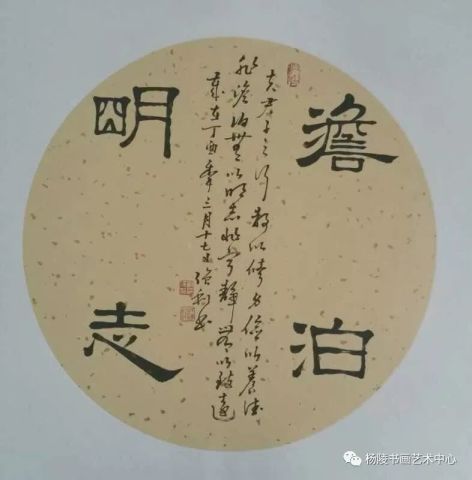 澹泊
明志
夫君子之行静以修身儉以養德
非澹泊無以明志非寧静無以致遠
歲在丁酉季三月十七
杨陵书画艺术中心